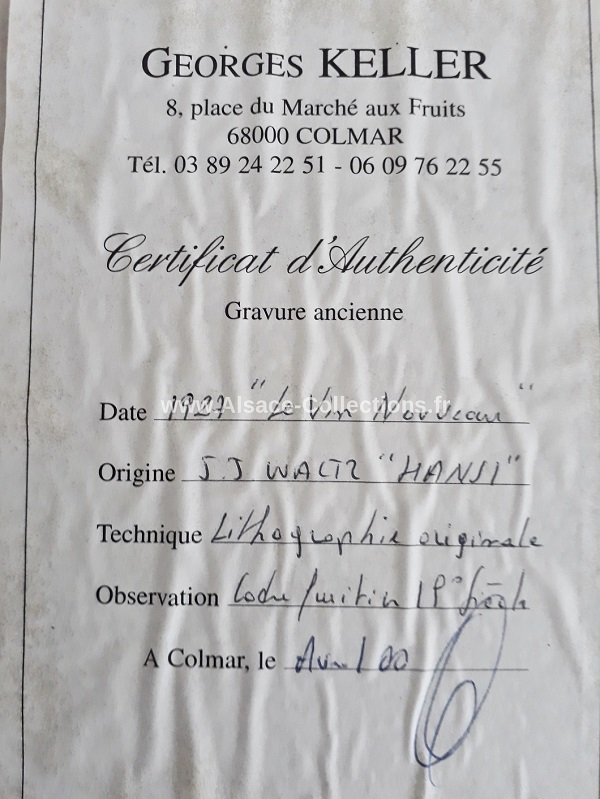 GEORGES KELLER
8, place du Marché aux Fruits
68000 COLMAR
Tél. 03 89 24 22 51 - 06 09 76 22 55
Certificat d'Authenticité
Gravure ancienne
Date "Le Vin Nouveau"
www.Alsace-Collections.fr
Origine J.J WALTZ "HANSI"
Technique Lithographie originale
Observation Cadre
A Colmar, le Avril 00